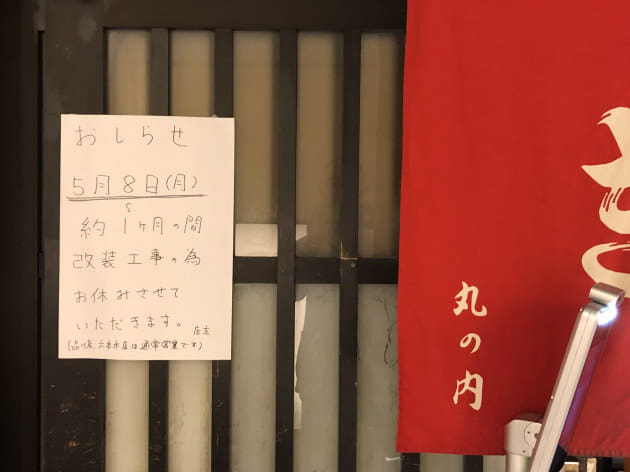 おしらせ
5月8日(月)
〜
約1ヶ月の間
改装工事の為
お休みさせて
いただきます。
店主
(品川店、六本木店は通常営業です)
丸の内